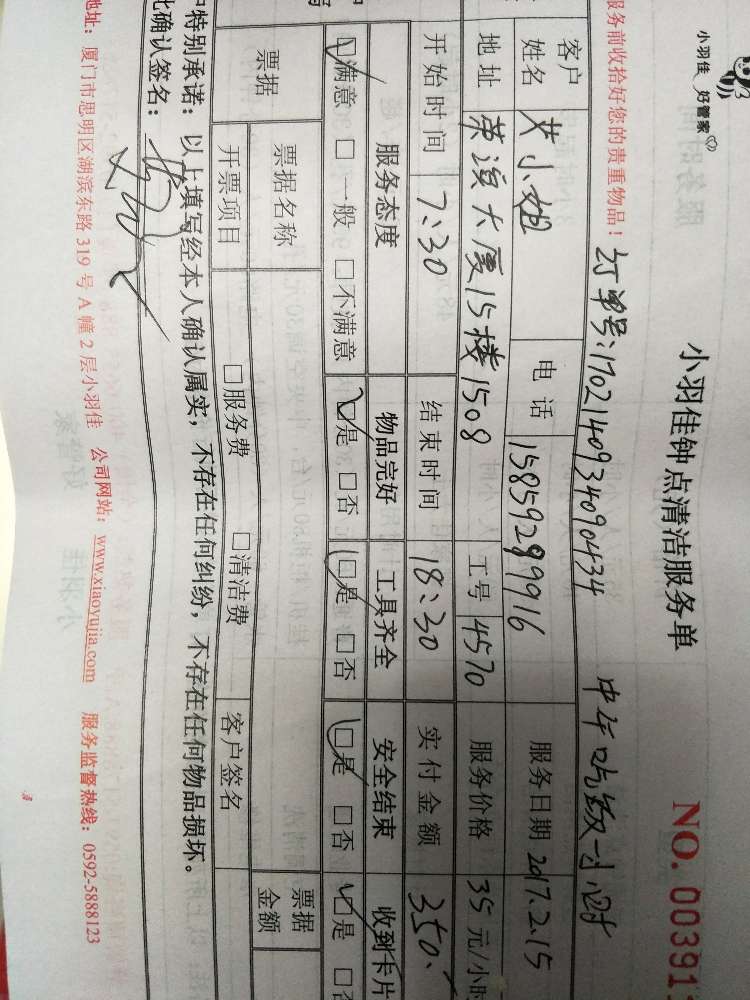 小羽佳 好管家
小羽佳钟点清洁服务单
NO. 00391
服务前收拾好您的贵重物品！ 订单号:1702140934090434 中午吃饭一小时
客户姓名 艾小姐 电话 15859289916 服务日期 2017.2.15
地址 荣滨大厦15楼1508 工号 4570 服务价格 35 元/小时
开始时间 7:30 结束时间 18:30 实付金额 350.
服务态度 物品完好 工具齐全 安全结束 收到卡片
☑满意 □一般 □不满意 ☑是 □否 ☑是 □否 ☑是 □否 ☑是 □否
票据 票据名称 票据金额
开票项目 □服务费 □清洁费 客户签名
特别承诺：以上填写经本人确认属实，不存在任何纠纷，不存在任何物品损坏。
此确认签名：
地址：厦门市思明区湖滨东路 319 号 A 幢 2 层小羽佳 公司网站：www.xiaoyujia.com 服务监督热线：0592-5888123